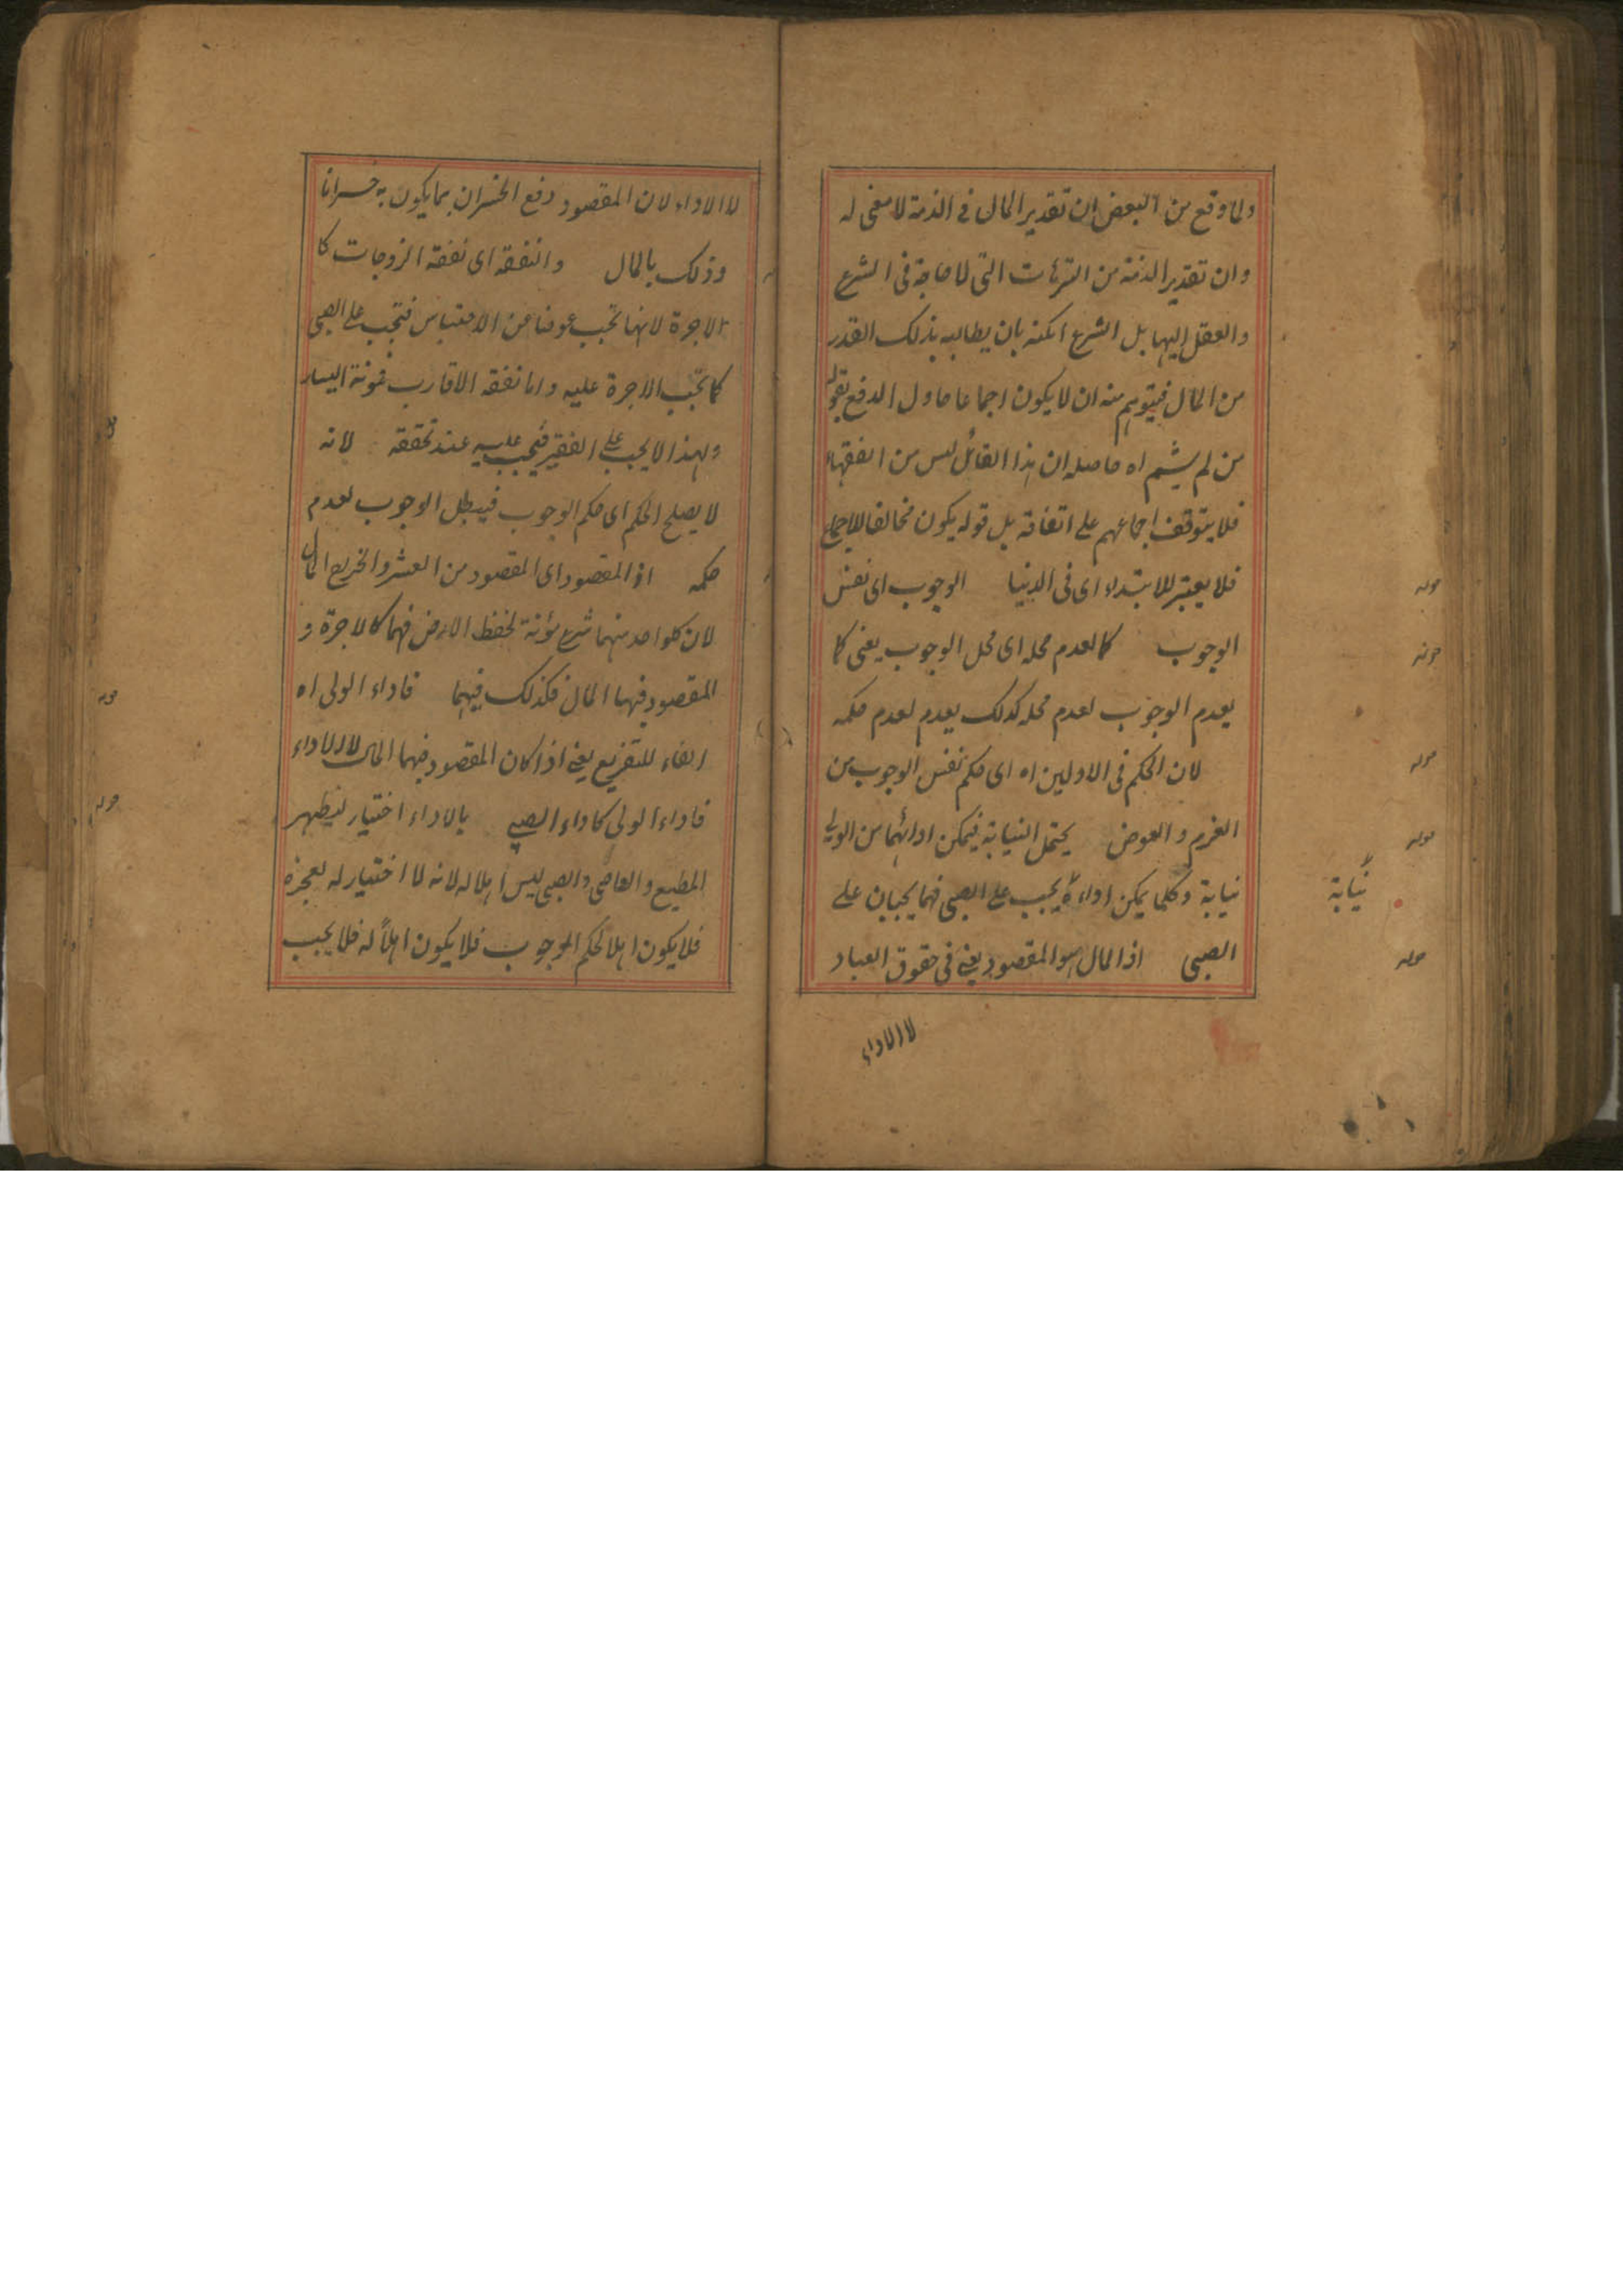 ولما وقع من البعض ان تقدير المال فى الذمة لا معنى له
وان تقدير الذمة من الترهات التى لا حاجة فى الشرع
والعقل اليها بل الشرع امكنه بان يطالبه بذلك القدر
من المال فيتوهم منه ان لا يكون اجماعا حاول الدفع بقوله
من لم يشم اه حاصله ان هذا القائل ليس من الفقهاء
فلا يتوقف اجماعهم على اتفاقه بل قوله يكون مخالفا للاجماع
فلا يعتبر للابتداء اى فى الدنيا الوجوب اى نفس
الوجوب كالعدم محله اى محل الوجوب يعنى كما
يعدم الوجوب لعدم محله كذلك يعدم لعدم حكمه
لان الحكم فى الاولين اه اى حكم نفس الوجوب من
الغرم والعوض يحتمل النيابة فيمكن ادائهما من الولى
نيابة وكلما يمكن اداءه يجب على الصبى فهما يجبان على
الصبى اذ المال هو المقصود يعنى فى حقوق العباد
لا الاداء
قوله
قوله
قوله
قوله
نيابة
قوله
لا الاداء لان المقصود دفع الخسران بما يكون به خسرانا
وذلك بالمال والنفقه اى نفقة الزوجات كا
الاجرة لانها تجب عوضا عن الاحتباس فتجب على الصبى
كما تجب الاجرة عليه واما نفقه الاقارب فمونة اليسار
ولهذا لا يجب على الفقير فيجب عليه عند تحققه لانه
لا يصلح الحكم اى حكم الوجوب فيبطل الوجوب لعدم
حكمه اذ المقصود اى المقصود من العشر والخراج المال
لان كلواحد منهما شرع مؤنة لحفظ الارض فهما كالاجرة و
المقصود فيها المال فكذلك فيهما فاداء الولى اه
الفاء للتفريع يعنى اذا كان المقصود فيهما المال لا الاداء
فاداء الولى كاداء الصبى بالاداء اختيار ليظهر
المطيع والعاصى والصبى ليس اهلا له لانه لا اختيار له لعجزه
فلا يكون اهلا لحكم الوجوب فلا يكون اهلاً له فلا يجب
قوله
قوله